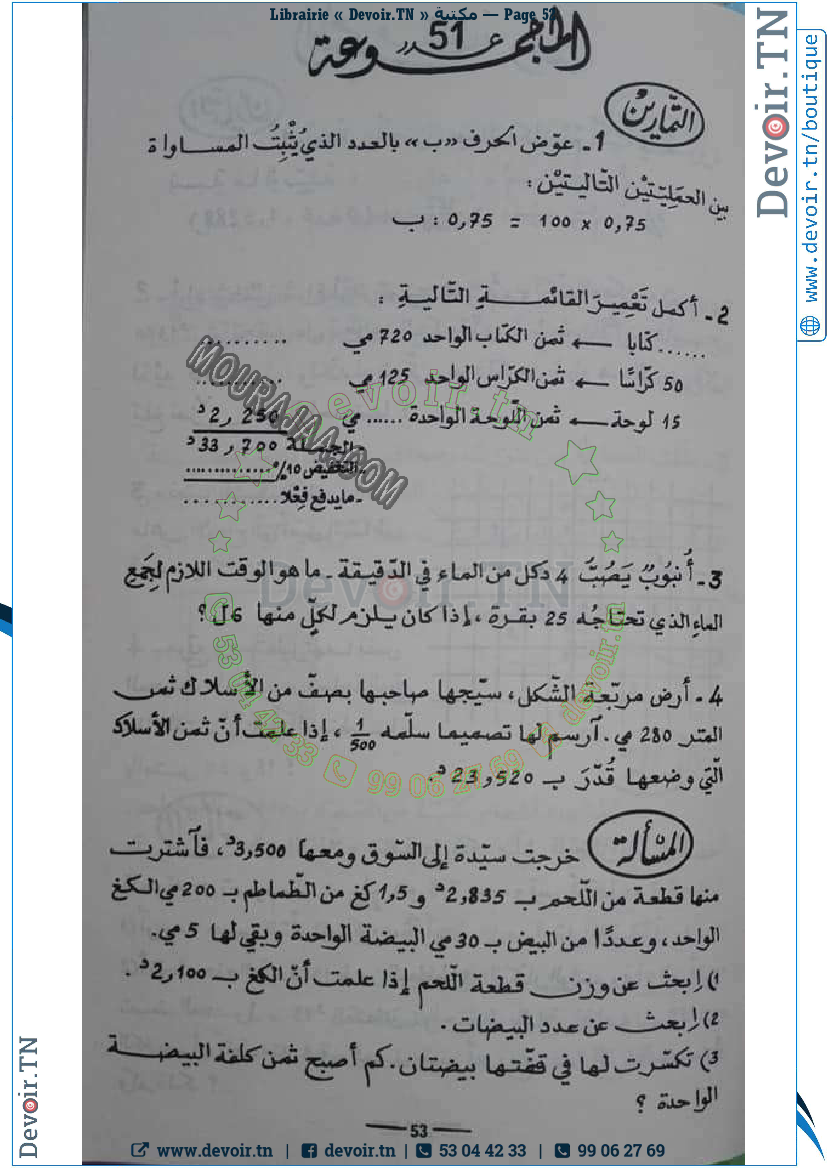 Librairie « Devoir.TN » مكتبة — Page 52
المجموعة عـدد 51
التمارين
1- عوّض الحرف «ب» بالعدد الذي يُثْبِتُ المساواة
بين العمليّتيْن التّاليتيْن :
0,75 × 100 = 0,75 : ب
2- أكمل تَعْمِيرَ القائمةِ التّاليةِ :
...... كتابا ← ثمن الكتاب الواحد 720 مي ..........
50 كرّاسًا ← ثمن الكرّاس الواحد 125 مي ..........
15 لوحة ← ثمن اللّوحة الواحدة ...... مي 2,250 د
- الجملة 33,700 د
- التخفيض 10% ..............
- ما يدفع فِعْلا ..........
3- أُنبُوبٌ يَصُبُّ 4 دكل من الماء في الدّقيقة - ما هو الوقت اللازم لِجَمع
الماء الذي تحتاجُه 25 بقرة ، إذا كان يلزم لكلّ منها 6 ل ؟
4- أرض مربّعة الشّكل ، سيّجها صاحبها بصفّ من الأسلاك ثمن
المتر 280 مي . آرسم لها تصميما سلّمه 1/500 ، إذا علمت أنّ ثمن الأسلاك
الّتي وضعها قُدِّرَ بـ 23,520 د.
المسألة
خرجت سيّدة إلى السّوق ومعها 3,500 د ، فآشترت
منها قطعة من اللّحم بـ 2,835 د و 1,5 كغ من الطّماطم بـ 200 مي الكغ
الواحد ، وعددًا من البيض بـ 30 مي البيضة الواحدة وبقي لها 5 مي .
1) إبحث عن وزن قطعة اللّحم إذا علمت أنّ الكغ بـ 2,100 د .
2) إبحث عن عدد البيضات .
3) تكسّرت لها في قفّتها بيضتان . كم أصبح ثمن كلفة البيضة
الواحدة ؟
53
MOURAJAA.COM
devoir.tn
Devoir.TN
53 04 42 33
99 06 27 69
devoir.tn
Devoir.TN
www.devoir.tn/boutique
Devoir.TN
www.devoir.tn | devoir.tn | 53 04 42 33 | 99 06 27 69